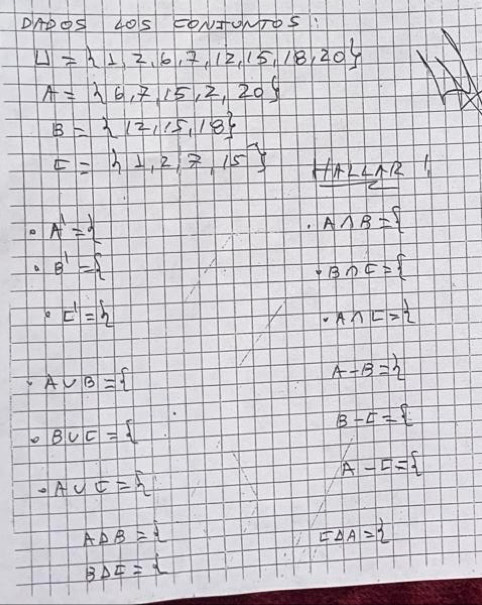 DADOS LOS CONJUNTOS:
U = {1, 2, 6, 7, 12, 15, 18, 20}
A = {6, 7, 15, 2, 20}
B = {12, 15, 18}
C = {1, 2, 7, 15}
HALLAR:
• A' = {
• B' = {
• C' = {
• A∪B = {
• B∪C = {
• A∪C = {
A∆B = {
B∆C = {
• A∩B = {
• B∩C = {
• A∩C = {
A-B = {
B-C = {
A-C = {
C∆A = {